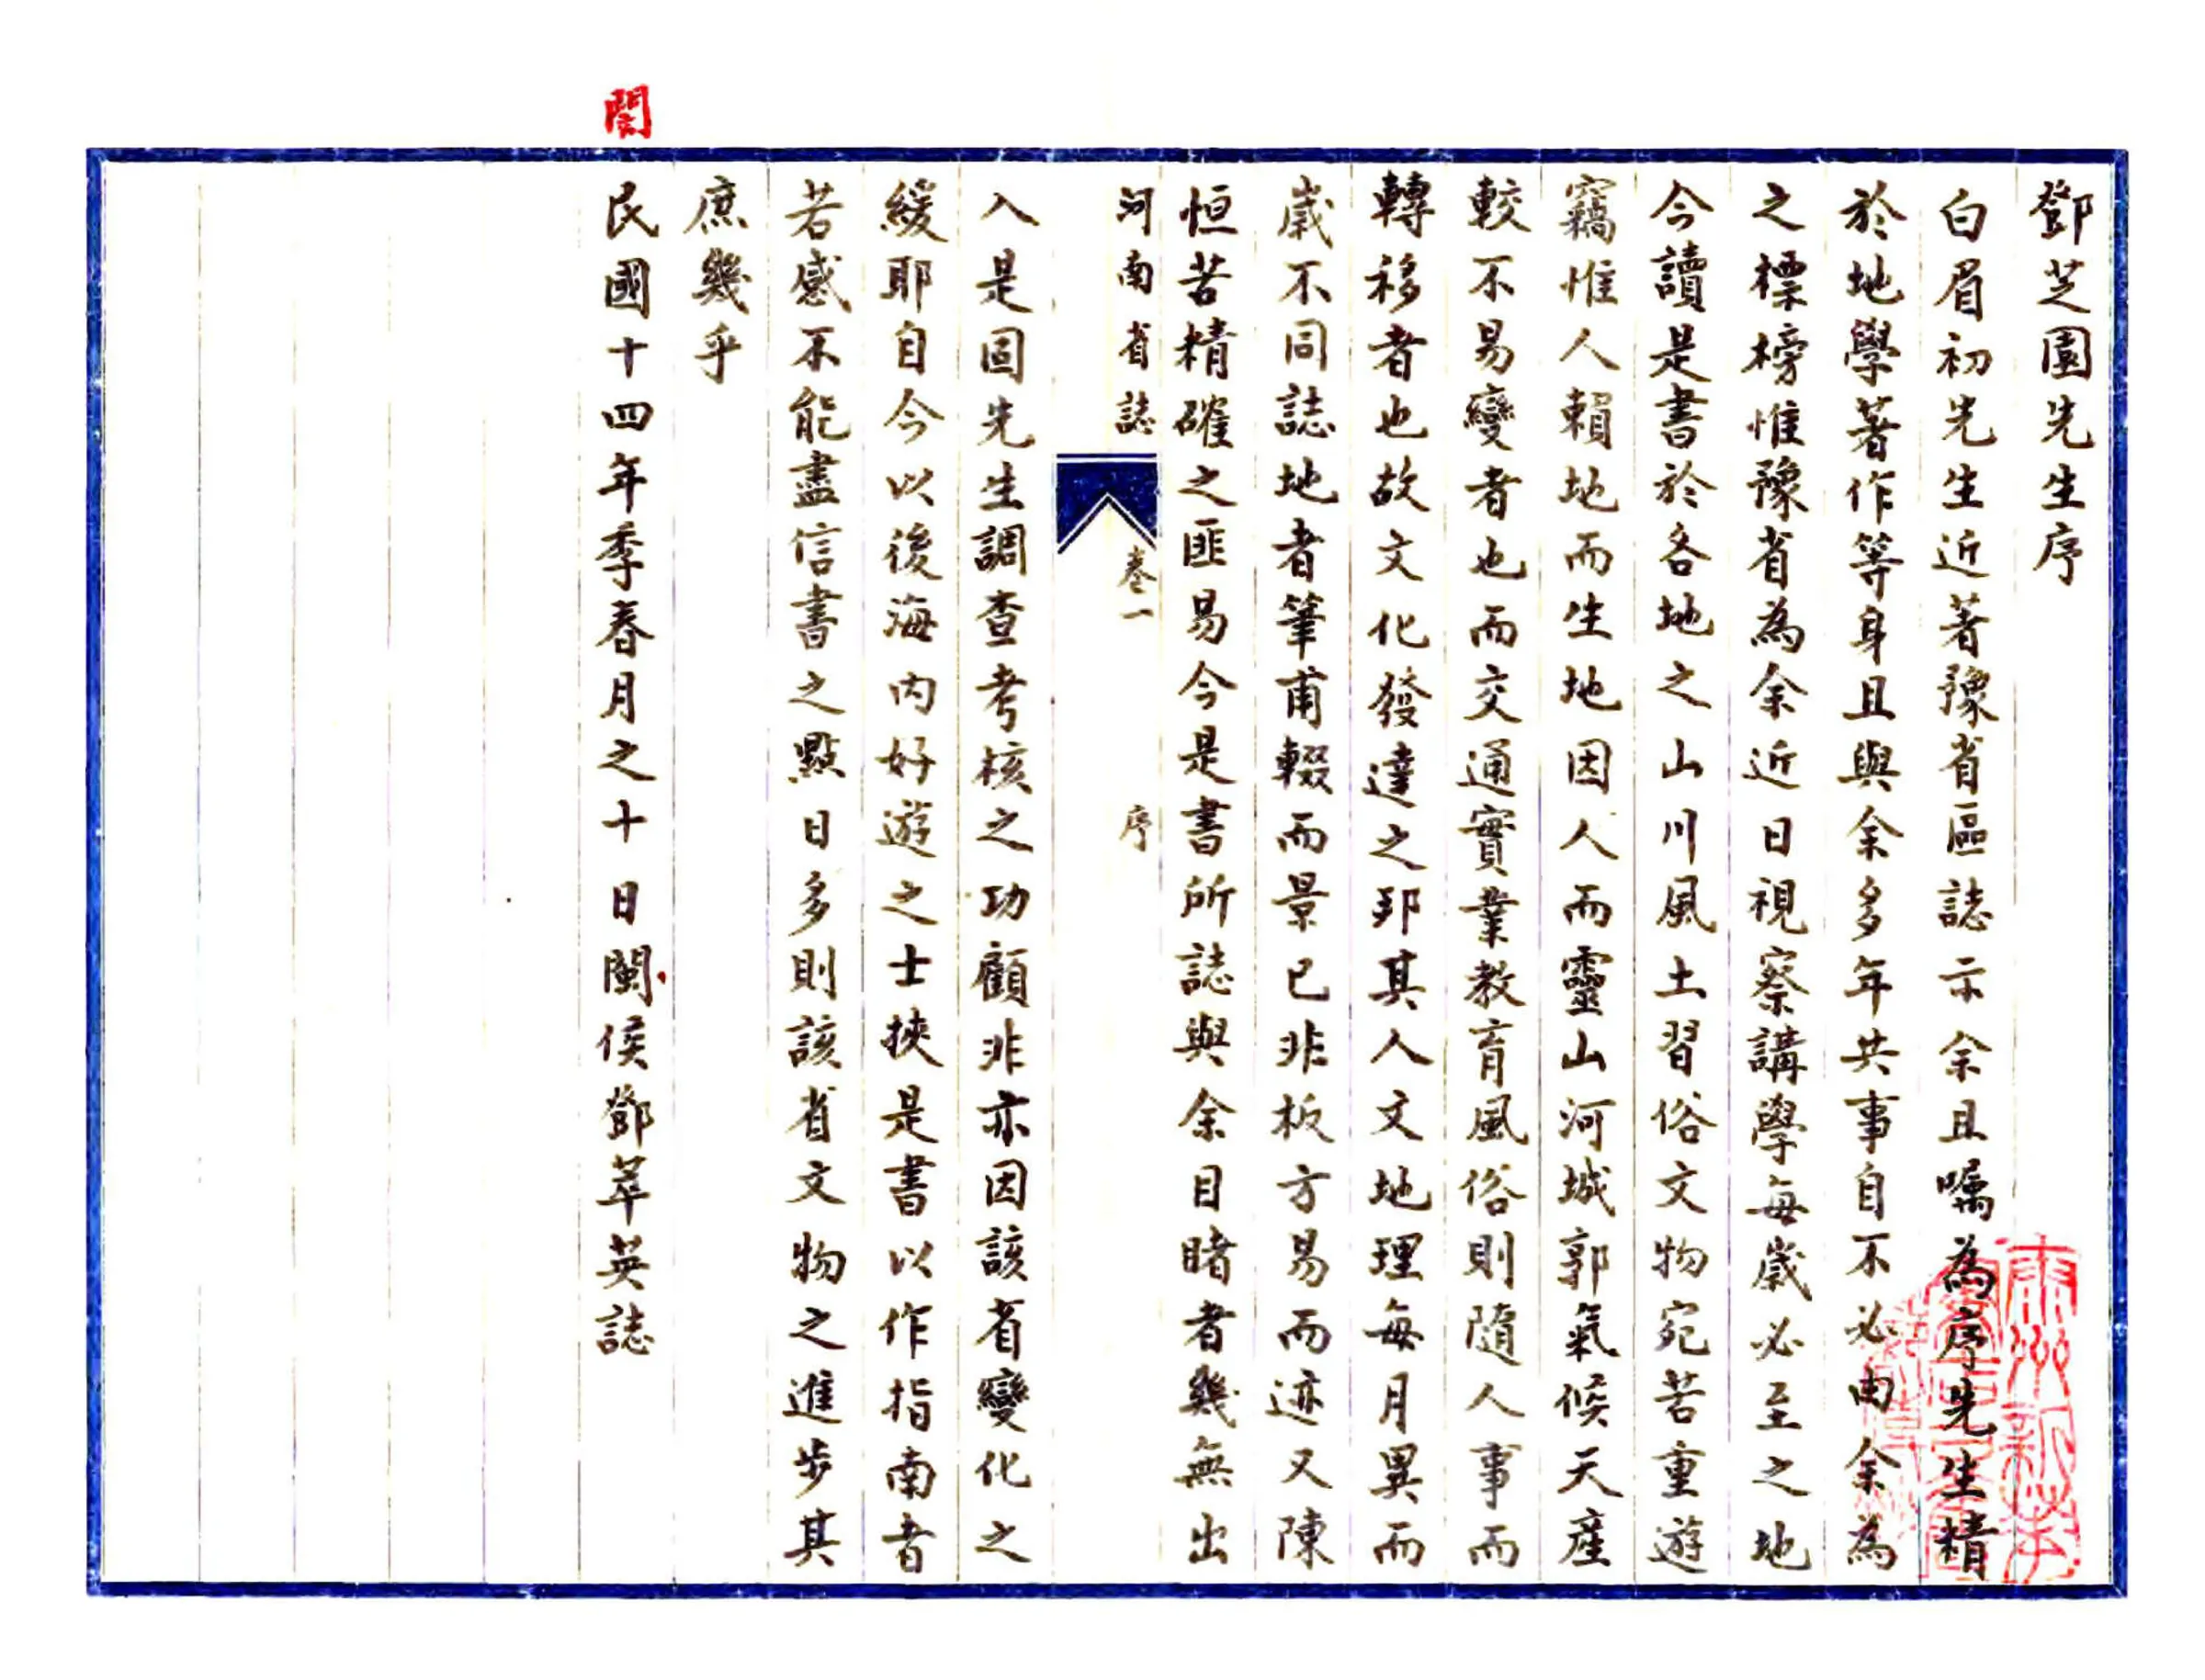 鄧芝園先生序
白眉初先生近著豫省區誌示余且囑為序先生精
於地學著作等身且與余多年共事自不必由余為
之標榜惟豫省為余近日視察講學每歲必至之地
今讀是書於各地之山川風土習俗文物宛若重遊
竊惟人賴地而生地因人而靈山河城郭氣候天產
較不易變者也而交通實業教育風俗則隨人事而
轉移者也故文化發達之邦其人文地理每月異而
歲不同誌地者筆甫輟而景已非板方易而迹又陳
恒苦精確之匪易今是書所誌與余目睹者幾無出
河南省誌 卷一 序
入是固先生調查考核之功顧非亦因該省變化之
緩耶自今以後海內好遊之士挾是書以作指南者
若感不能盡信書之點日多則該省文物之進步其
庶幾乎
閩
民國十四年季春月之十日閩侯鄧萃英誌